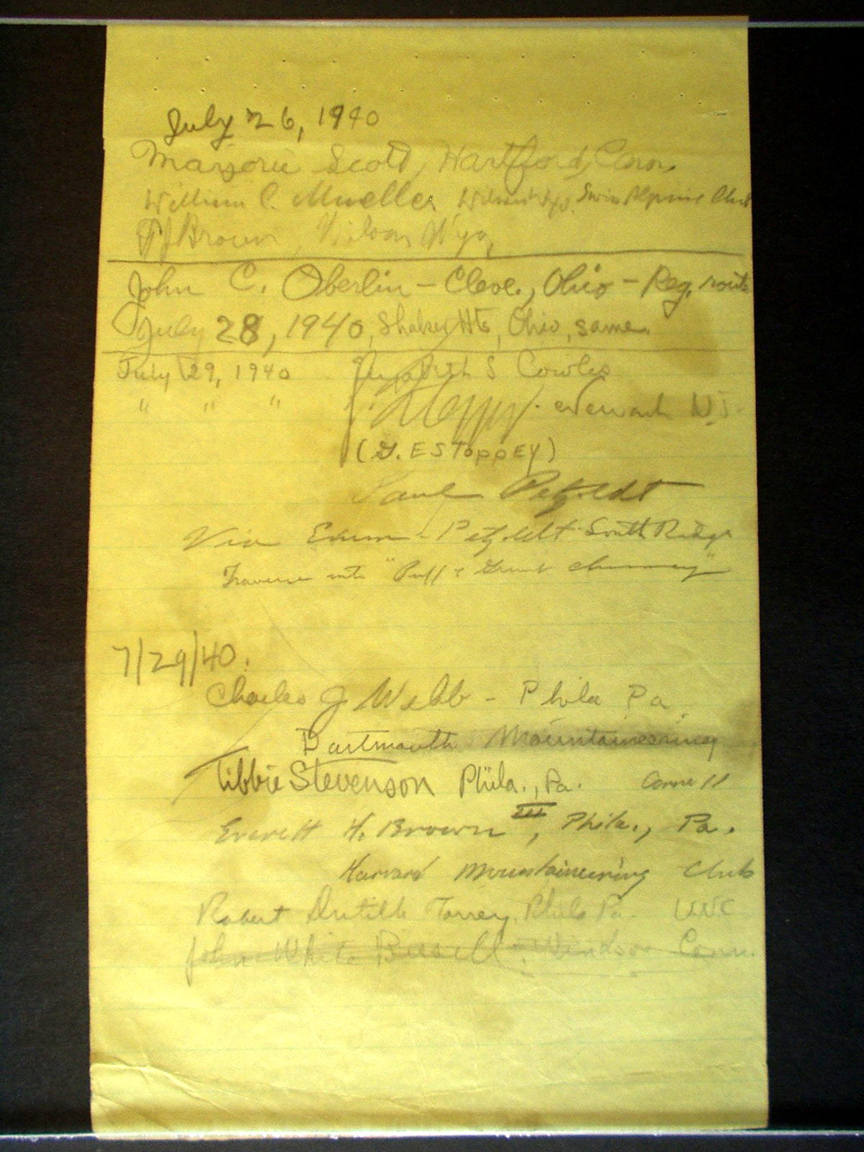 July 26, 1940
Marjorie Scott, Hartford, Conn.
William C. Mueller Swiss Alpine Club
Brown, Wilson Wyo,
John C. Oberlin - Cleve., Ohio - Reg. route
July 28, 1940, Shaker Hts, Ohio, same.
July 29, 1940 Elizabeth S Cowles
" " " Newark N.J.
(G. E Stoppey)
Paul Petzoldt
Via Exum - Petzoldt South Ridge
Traverse into "Puff & Grunt chimney"
7/29/40.
Charles J Webb - Phila Pa.
Dartmouth Mountaineering
Tibbie Stevenson Phila., Pa. Cornell
Everett H. Brown III, Phila., Pa.
Harvard Mountaineering Club
Robert Torrey, Phila Pa.
John White Windsor Conn.